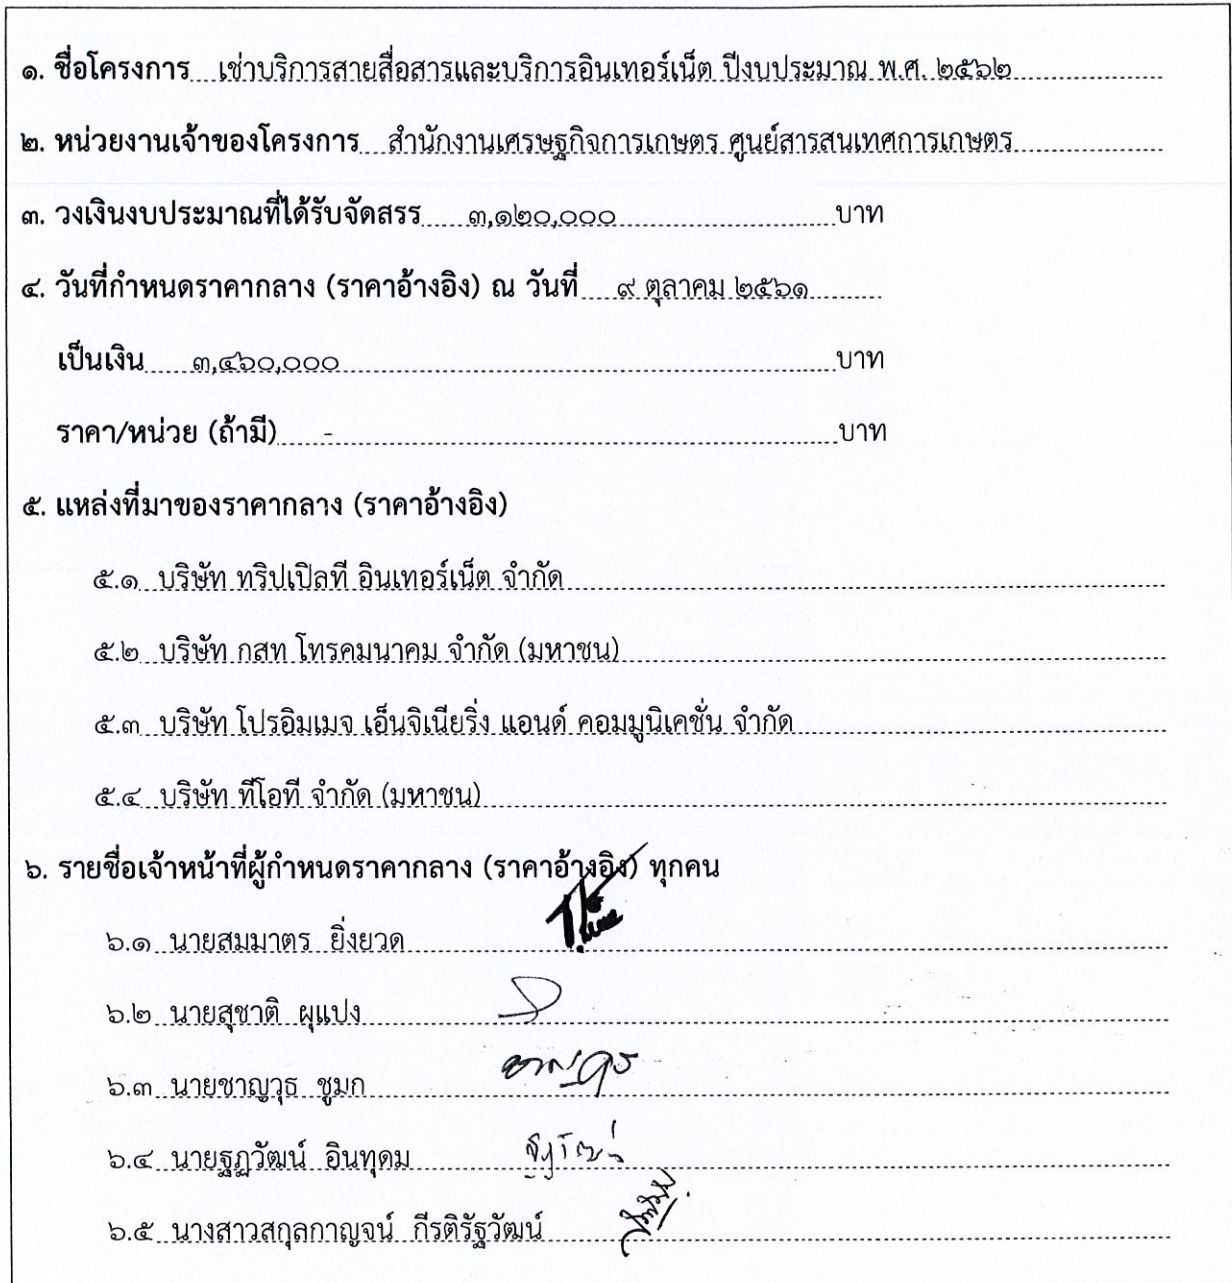 ๑. ชื่อโครงการ เช่าบริการสายสื่อสารและบริการอินเทอร์เน็ต ปีงบประมาณ พ.ศ. ๒๕๖๒
๒. หน่วยงานเจ้าของโครงการ สำนักงานเศรษฐกิจการเกษตร ศูนย์สารสนเทศการเกษตร
๓. วงเงินงบประมาณที่ได้รับจัดสรร ๓,๑๒๐,๐๐๐ บาท
๔. วันที่กำหนดราคากลาง (ราคาอ้างอิง) ณ วันที่ ๙ ตุลาคม ๒๕๖๑
เป็นเงิน ๓,๔๖๐,๐๐๐ บาท
ราคา/หน่วย (ถ้ามี) - บาท
๕. แหล่งที่มาของราคากลาง (ราคาอ้างอิง)
๕.๑ บริษัท ทริปเปิลที อินเทอร์เน็ต จำกัด
๕.๒ บริษัท กสท โทรคมนาคม จำกัด (มหาชน)
๕.๓ บริษัท โปรอิมเมจ เอ็นจิเนียริ่ง แอนด์ คอมมูนิเคชั่น จำกัด
๕.๔ บริษัท ทีโอที จำกัด (มหาชน)
๖. รายชื่อเจ้าหน้าที่ผู้กำหนดราคากลาง (ราคาอ้างอิง) ทุกคน
๖.๑ นายสมมาตร ยิ่งยวด
๖.๒ นายสุชาติ ผุแปง
๖.๓ นายชาญวุธ ชูมก
๖.๔ นายฐฏวัฒน์ อินทุดม
๖.๕ นางสาวสกุลกาญจน์ กีรติรัฐวัฒน์